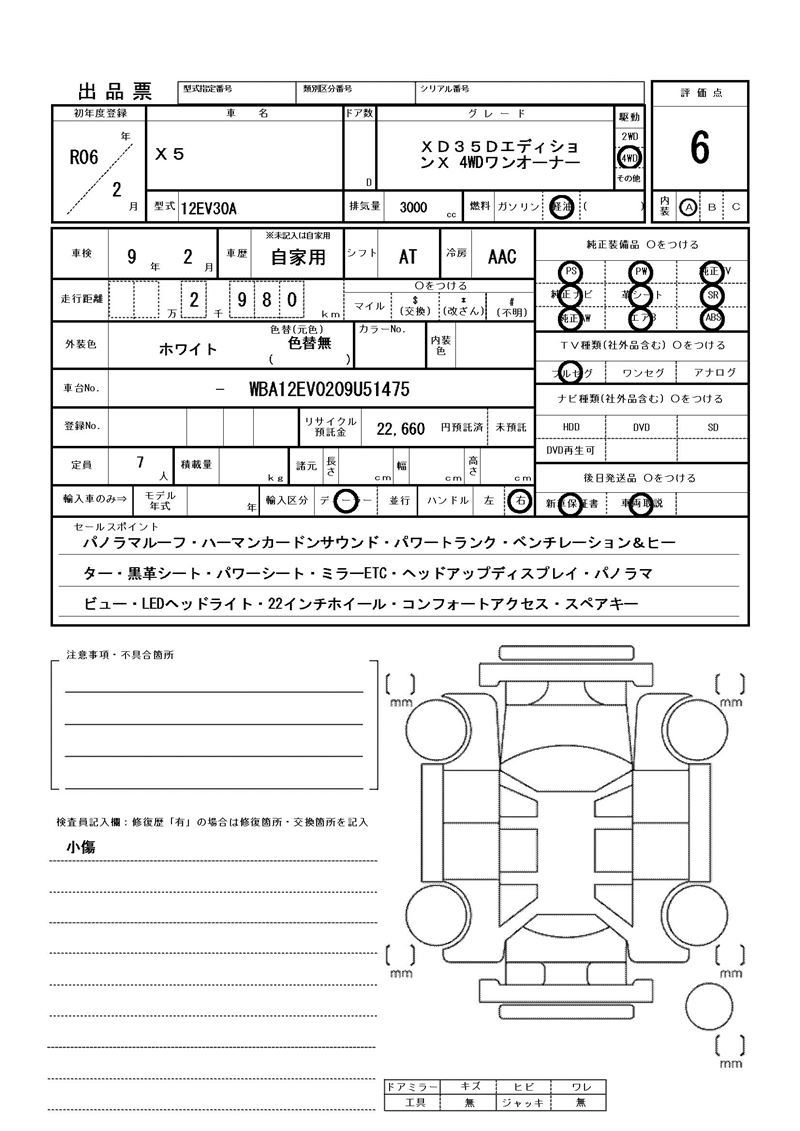 出品票 型式指定番号 類別区分番号 シリアル番号 評価点
初年度登録 車名 ドア数 グレード 駆動
R06 年 2 月 X5 D XD35Dエディショ 2WD 6
ンX 4WDワンオーナー 4WD
その他
型式 12EV30A 排気量 3000 cc 燃料 ガソリン 軽油 ( ) 内装 A B C
車検 9 年 2 月 車歴 ※未記入は自家用 自家用 シフト AT 冷房 AAC 純正装備品 Oをつける
PS PW 純正TV
走行距離 万 2 千 9 8 0 km Oをつける 純正ナビ 革シート SR
マイル $(交換) *(改ざん) #(不明) 純正AW エアB ABS
外装色 ホワイト 色替(元色) 色替無 ( ) カラーNo. 内装色 TV種類(社外品含む) Oをつける
フルセグ ワンセグ アナログ
車台No. - WBA12EV0209U51475 ナビ種類(社外品含む) Oをつける
登録No. リサイクル預託金 22,660 円預託済 未預託 HDD DVD SD
DVD再生可
定員 7 人 積載量 kg 諸元 長さ cm 幅 cm 高さ cm 後日発送品 Oをつける
輸入車のみ⇒ モデル年式 年 輸入区分 ディーラー 並行 ハンドル 左 右 新車保証書 車両取説
セールスポイント
パノラマルーフ・ハーマンカードンサウンド・パワートランク・ベンチレーション&ヒー
ター・黒革シート・パワーシート・ミラーETC・ヘッドアップディスプレイ・パノラマ
ビュー・LEDヘッドライト・22インチホイール・コンフォートアクセス・スペアキー
注意事項・不具合箇所
mm mm
検査員記入欄:修復歴「有」の場合は修復箇所・交換箇所を記入
小傷
mm mm
mm
ドアミラー キズ ヒビ ワレ
工具 無 ジャッキ 無